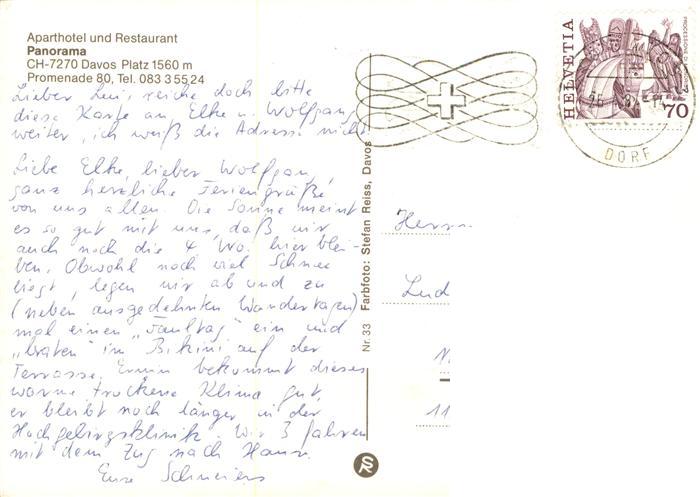 Aparthotel und Restaurant
Panorama
CH-7270 Davos Platz 1560 m
Promenade 80, Tel. 083 3 55 24
Lieber Lui, reiche doch bitte
diese Karte an Elke u. Wolfgang
weiter, ich weiß die Adresse nicht
Liebe Elke, lieber Wolfgang,
ganz herzliche Feriengrüße
von uns allen. Die Sonne meint
es so gut mit uns, daß wir
auch noch die 4. Wo. hier blei-
ben. Obwohl noch viel Schnee
liegt, legen wir ab und zu
(neben ausgedehnten Wandertagen)
mal einen "Faultag" ein und
"braten" im Bikini auf der
Terrasse. Erwin bekommt dieses
warme trockene Klima gut,
er bleibt noch länger in der
Hochgebirgsklinik. Wir 3 fahren
mit dem Zug nach Hause.
Eure Schreiers
Nr. 33 Farbfoto: Stefan Reiss, Davos
HELVETIA
70
DORF
Herrn
Lud
11